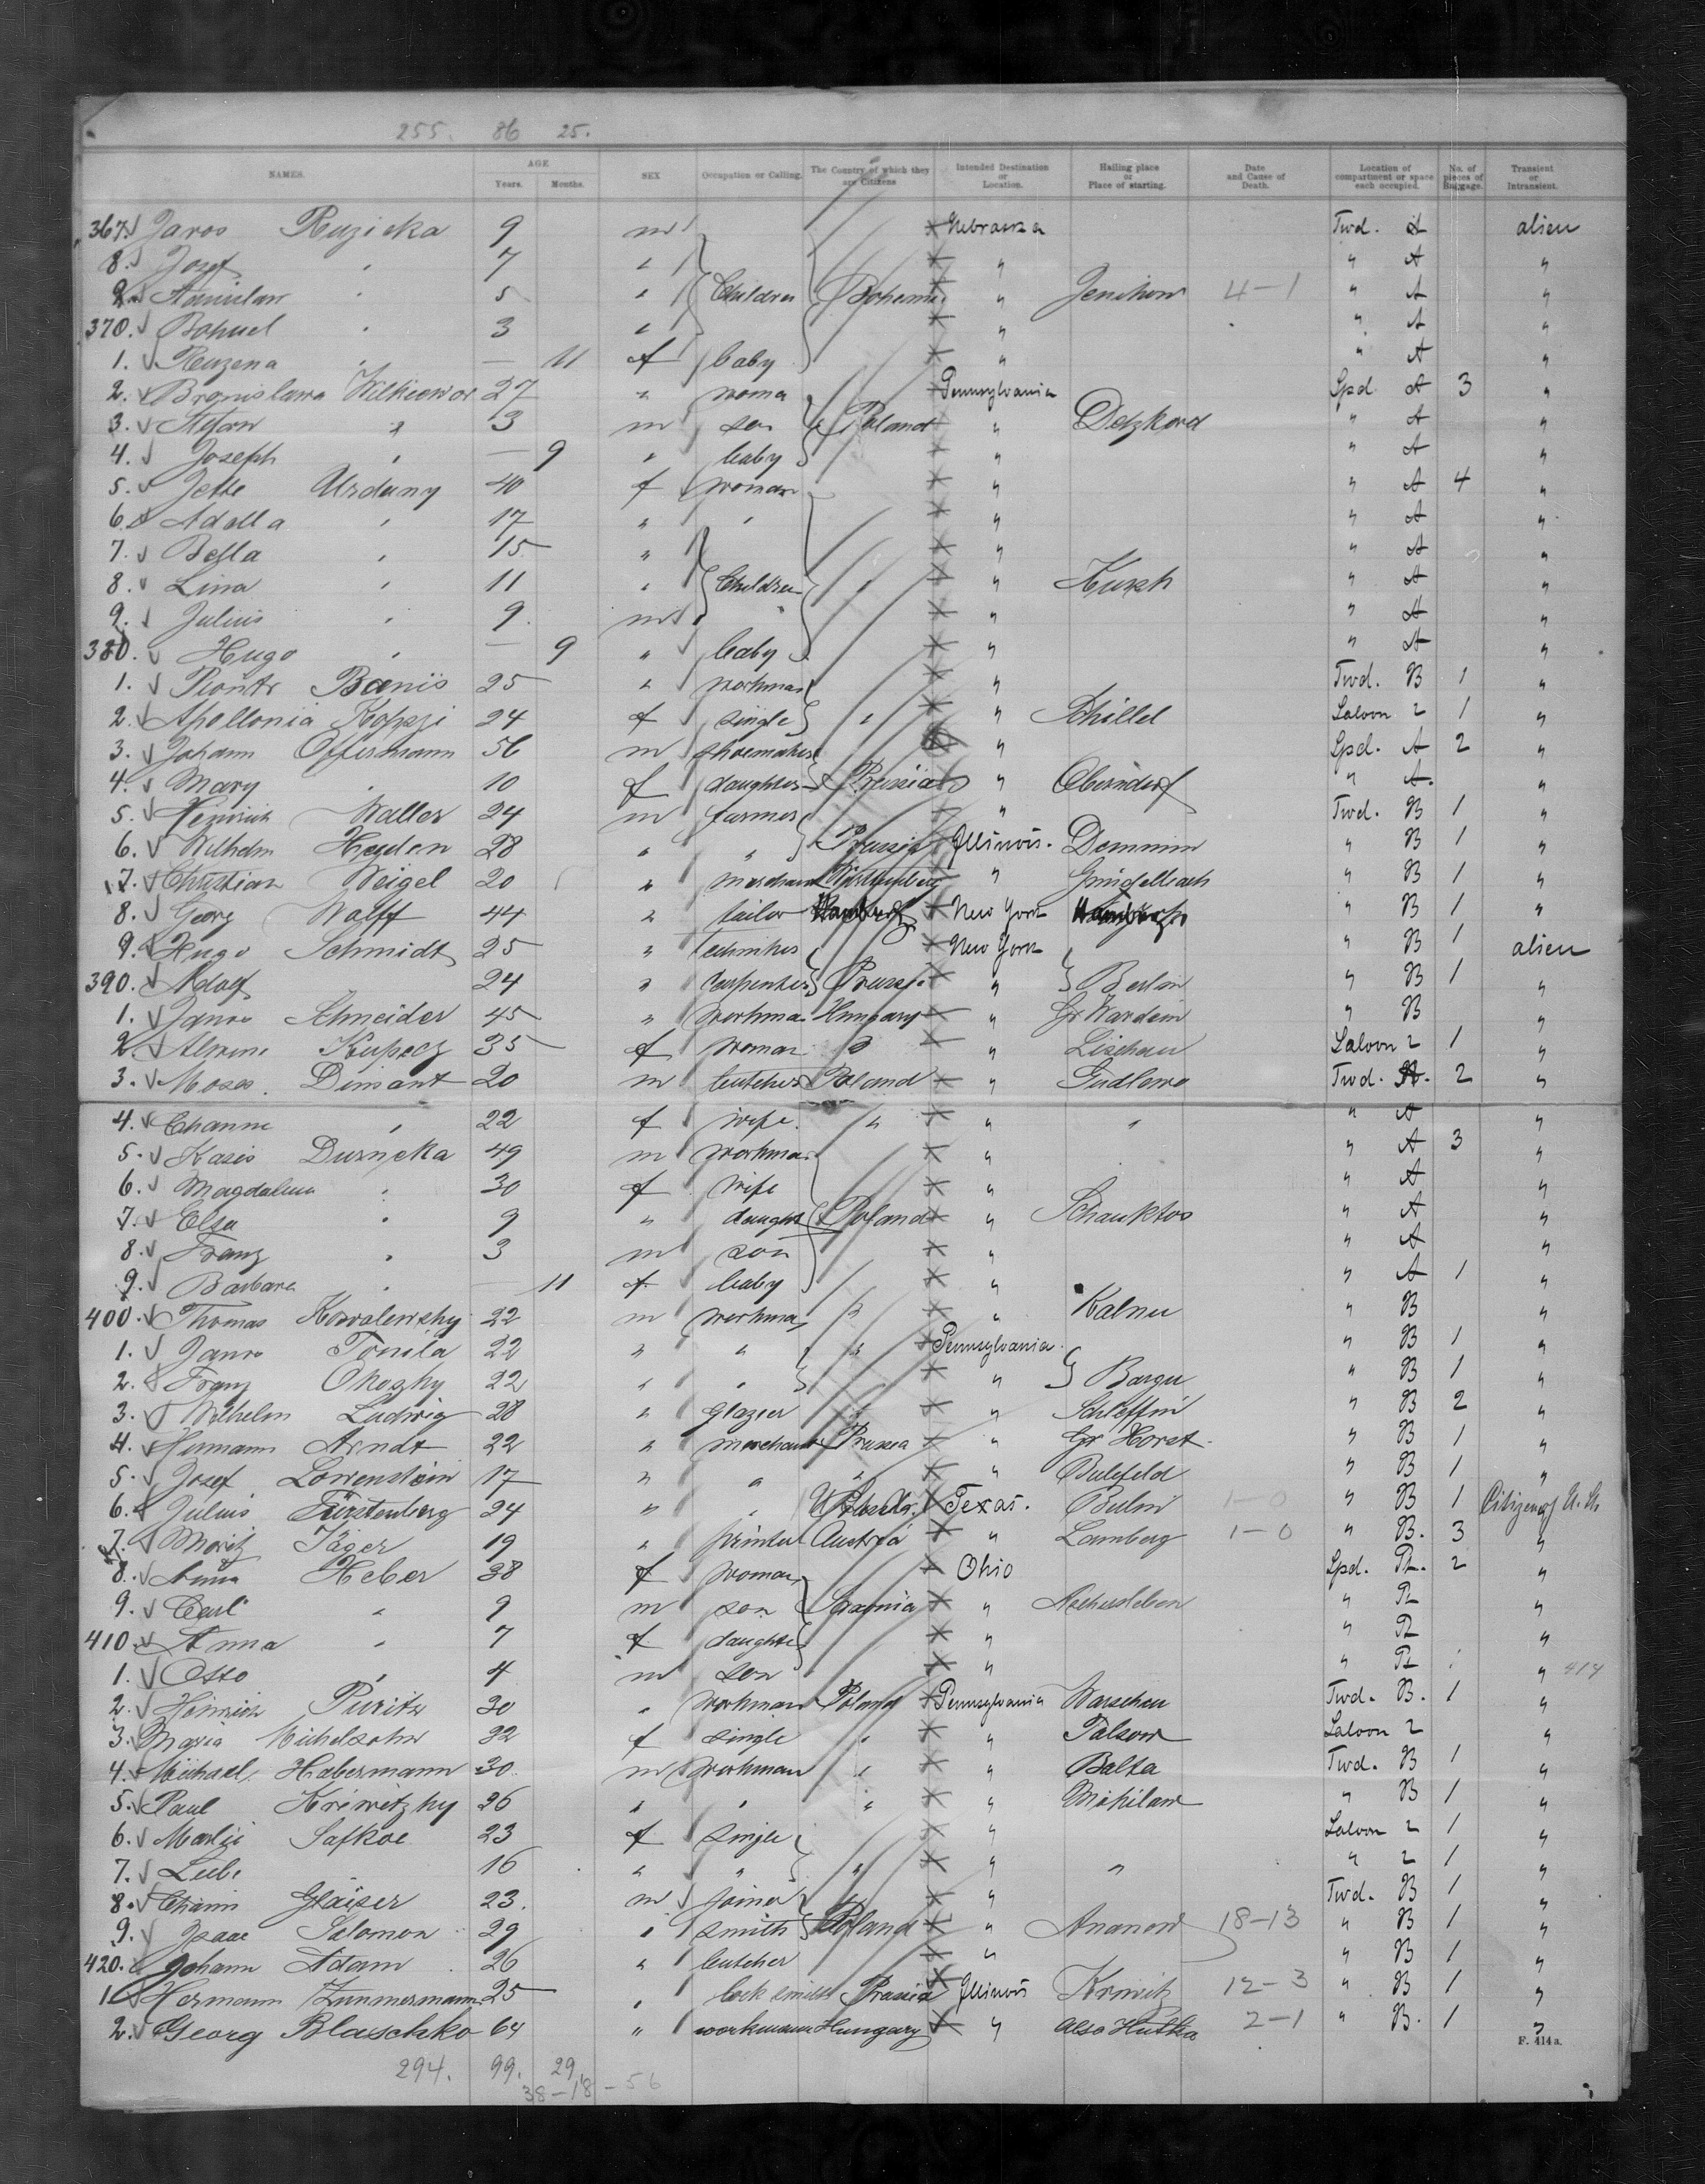 255. 86 25.
NAMES. AGE Years. Months. SEX Occupation or Calling. The Country of which they are Citizens Intended Destination or Location. Hailing place or Place of starting. Date and Cause of Death. Location of compartment or space each occupied. No. of pieces of Baggage. Transient or Intransient.
367. Jaros Ruzicka 9 m Nebraska Twd. A alien
8. Josef " 7 " " " A "
9. Stanislaw " 5 " Children Bohemia " Jenikow 4-1 " A "
370. Bohuel " 3 " " " A "
1. Ruzena " — 11 f baby " " A "
2. Bronislawa Wilkiewor 27 " woma Pennsylvania Spd A 3 "
3. Stefan " 3 m son Poland " Detzkord " A "
4. Joseph " — 9 " baby " " A "
5. Jette Urdany 40 f woman " " A 4 "
6. Adella " 17 " " " " A "
7. Bella " 15 " " " A "
8. Lina " 11 " Children " " " A "
9. Julius " 9 m " " " A "
380. Hugo " — 9 " baby " " A "
1. Piontr Banis 25 " workman " Twd. B 1 "
2. Apollonia Koppzi 24 f single " " Schillel Saloon 2 1 "
3. Johann Offermann 56 m shoemaker " Spd. A 2 "
4. Mary " 10 f daughter Prussia " Oberndorf " A. "
5. Heinrich Waller 24 m farmer " Twd. B 1 "
6. Wilhelm Heyden 28 " " Prussia Illinois. Demmin " B 1 "
7. Christian Weigel 20 " merchant Württemberg " " B 1 "
8. Georg Wolff 44 " tailor Hamburg New York Hamburg " B 1 "
9. Hugo Schmidt 25 " New York " B 1 alien
390. Adolf " 24 " carpenter Prussia " Berlin " B 1 "
1. Janos Schneider 45 " workma Hungary " Gr Wardein " B "
2. Alwine Kupecz 35 f woman " " Lischau Saloon 2 1 "
3. Moses Dimant 20 m butcher Poland " Gudlewo Twd. A. 2 "
4. Channe " 22 f wife. " " " " A "
5. Kasis Durnicka 49 m workma. " " A 3 "
6. Magdalena " 30 f wife " " A "
7. Elsa " 9 " daught Poland " Schauktos " A "
8. Franz " 3 m son " " A "
9. Barbara " — 11 f baby " " A 1 "
400. Thomas Kowalewsky 22 m workma " " Kalnu " B "
1. Janos Tomila 22 " " " Pennsylvania " B 1 "
2. Franz 22 " " " Bargu " B 1 "
3. Wilhelm Ludwig 28 " glazier " " Schleffin " B 2 "
4. Hermann Arndt 22 " merchant Prussia " Gr Horst " B 1 "
5. Josef Löwenstein 17 " " " " Bulefeld " B 1 "
6. Julius Fürstenberg 24 " " Texas. 1-0 " B 1 Citizen of U. St.
7. Moritz Jäger 19 " printer Austria " Lemberg 1-0 " B. 3 "
8. Anna Heber 38 f woman Ohio Spd. 2 "
9. Carl " 9 m son Saxonia " Aschersleben " "
410. Anna " 7 f daughter " " "
1. Otto " 4 m son " " " 414
2. Heinrich Puritz 30 " workman Poland Pennsylvania Warschau Twd. B. 1 "
3. Maria Michelsohn 32 f single " " Palsow Saloon 2 "
4. Michael Habermann 30 m workman " " Balta Twd. B 1 "
5. Paul Krewitzky 26 " " " " Mohilaw " B 1 "
6. Marlje Safkoe 23 f single " Saloon 2 1 "
7. Liebe 16 " " " " " " 2 1 "
8. Chaim Glaiser 23. m joiner " Twd. B 1 "
9. Isaac Salomon 29 " smith Poland " Ananow 18-13 " B 1 "
420. Johann Adam 26 " butcher " " B 1 "
1. Hermann Zimmermann 25 " lock smith Prussia Illinois Krewitz 12-3 " B 1 "
2. Georg Blaschko 64 " workman Hungary " Also Hutka 2-1 " B. 1 "
F. 414a.
294. 99. 29.
38-18-56